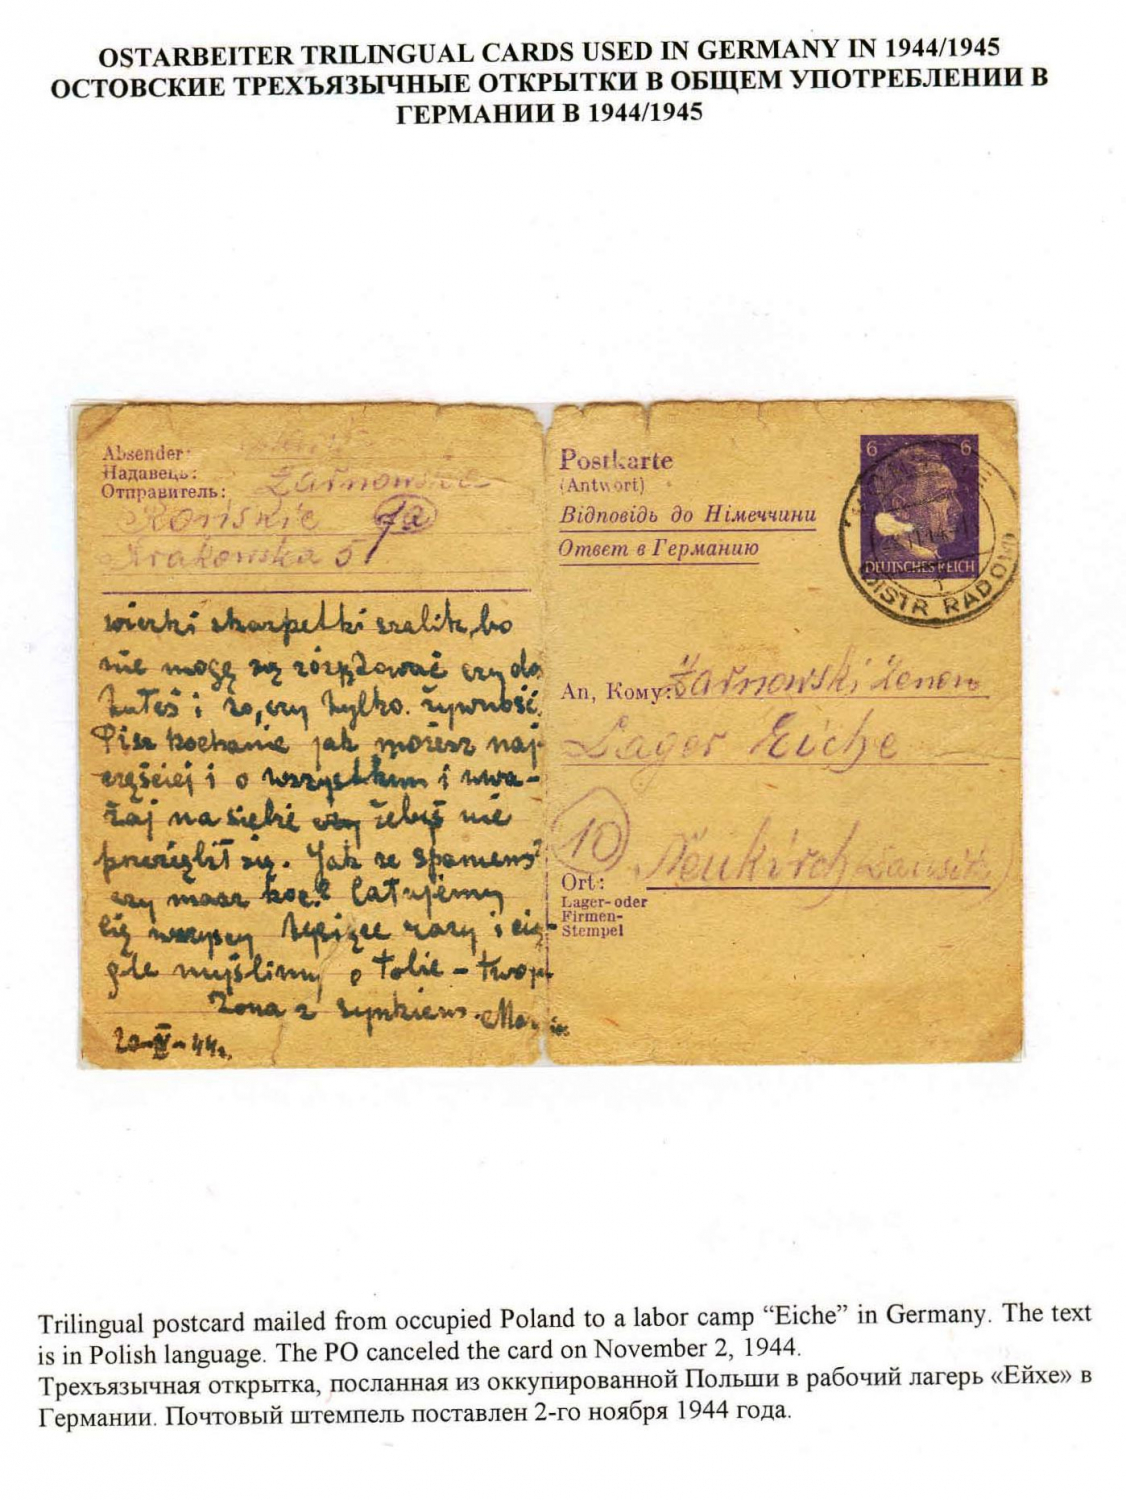 OSTARBEITER TRILINGUAL CARDS USED IN GERMANY IN 1944/1945
ОСТОВСКИЕ ТРЕХЪЯЗЫЧНЫЕ ОТКРЫТКИ В ОБЩЕМ УПОТРЕБЛЕНИИ В
ГЕРМАНИИ В 1944/1945
Absender:
Надавець:
Отправитель: Żarnowska
Końskie 7a
Krakowska 5
skarpetki szalik, bo
nie mogę się czy do
i to, czy tylko żywność.
Pisz kochanie jak możesz naj-
częściej i o wszystkim i uwa-
żaj na siebie żebyś nie
przeziębił się. Jak ze spaniem?
czy masz koc? Całujemy
Cię wszyscy tysiące razy i cią-
gle myślimy o Tobie - twoja
żona z synkiem. Maria
44r.
Postkarte
(Antwort)
Відповідь до Німеччини
Ответ в Германию
6 6
DEUTSCHES REICH
DISTR RADOM
An, Кому: Żarnowski Zenon
Lager Eiche
10
Neukirch (Lausitz)
Ort:
Lager- oder
Firmen-
Stempel
Trilingual postcard mailed from occupied Poland to a labor camp “Eiche” in Germany. The text
is in Polish language. The PO canceled the card on November 2, 1944.
Трехъязычная открытка, посланная из оккупированной Польши в рабочий лагерь «Ейхе» в
Германии. Почтовый штемпель поставлен 2-го ноября 1944 года.